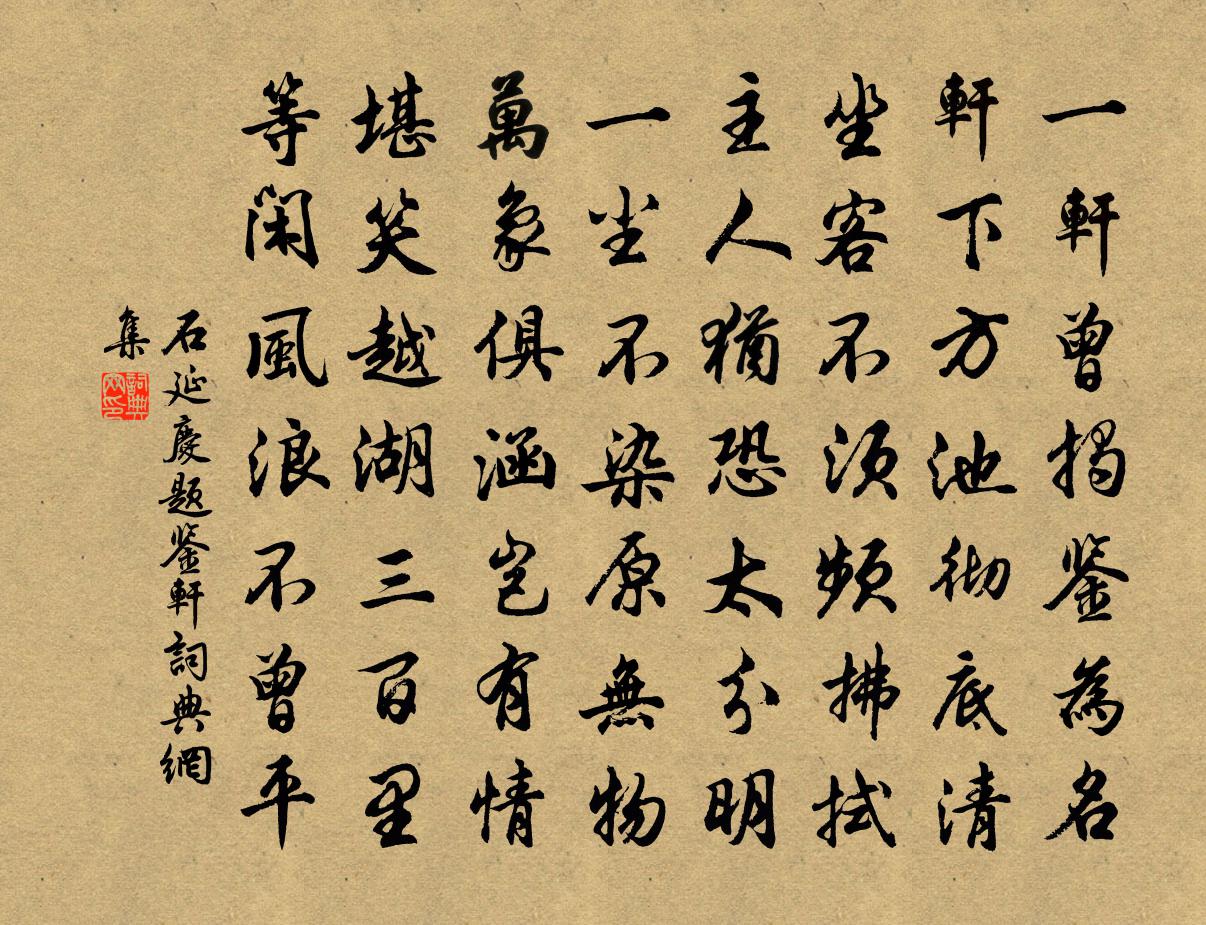 一軒曾揭鉴為名
軒下方池彻底清
坐客不須頻拂拭
主人猶恐太分明
一尘不染原無物
萬象俱涵岂有情
堪笑越湖三百里
等閑風浪不曾平
石延慶題鉴軒詞典網
集
詞典
网印